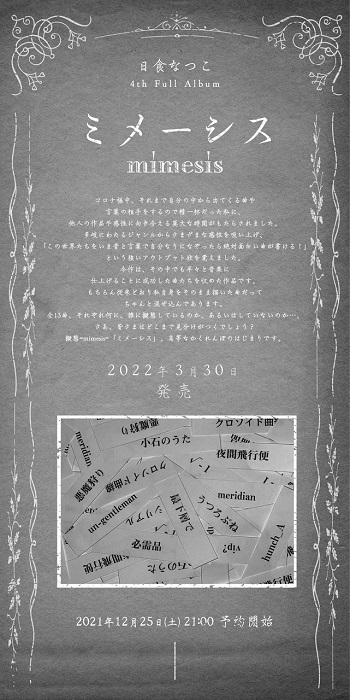 日食なつこ
4th Full Album
ミメーシス
mimesis
コロナ禍中、それまで自分の中から出てくる曲や
言葉の相手をするので精一杯だった私に、
他人の作品や感性に向き合える莫大な時間がもたらされました。
多岐にわたるジャンルからさまざまな感性を吸い上げ、
「この世界たちをいま音と言葉で自分なりになぞったら絶対面白い曲が書ける！」
という強いアウトプット欲を覚えました。
今作は、その中でも早々と音楽に
仕上げることに成功した曲たちを収めた作品です。
もちろん従来どおり私自身をそのまま描いた曲だって
ちゃんと混ぜ込んであります。
全13曲、それぞれ何に、誰に擬態しているのか、あるいはしていないのか…。
さあ、皆さまはどこまで見分けがつくでしょう？
擬態=mimesis=「ミメーシス」、高等なかくれんぼのはじまりです。
2022年3月30日
発売
meridian
悪魔狩り
小石のうた
クロソイド曲
夜間飛行便
悪魔狩り
クロソイド曲線
un-gentleman
シリアル
最下層で
うつろぶね
meridian
必需品
vip?
hunch_A
間飛行便
石のうた
2021年12月25日(土) 21:00 予約開始